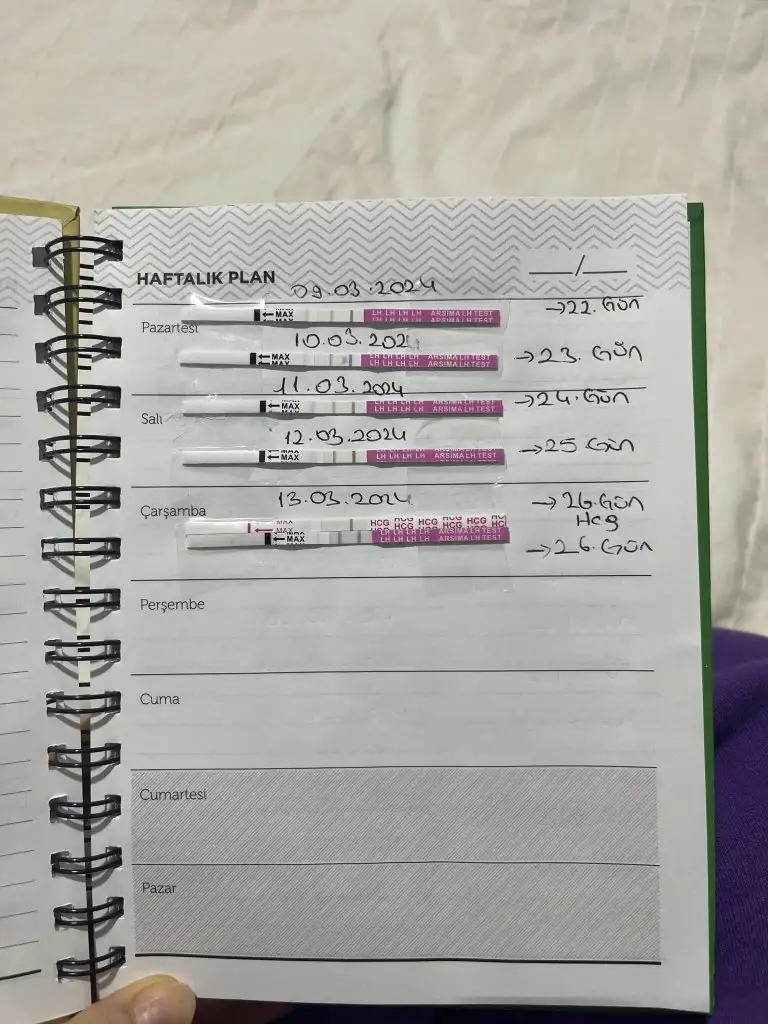 HAFTALIK PLAN
__/__
09.03.2024
Pazartesi
MAX
MAX
LH LH LH LH ARSIMA LH TEST
→22. Gün
10.03.202
MAX
MAX
LH LH LH LH ARSIMA LH TEST
→23. Gün
11.03.2024
Salı
MAX
MAX
LH LH LH LH ARSIMA LH TEST
→24. Gün
12.03.2024
MAX
LH LH LH LH ARSIMA LH TEST
→25 Gün
13.03.2024
Çarşamba
MAX
HCG HCG HCG HCG HCG HCG
→26. Gün
Hcg
MAX
LH LH LH LH ARSIMA LH TEST
→26. Gün
Perşembe
Cuma
Cumartesi
Pazar